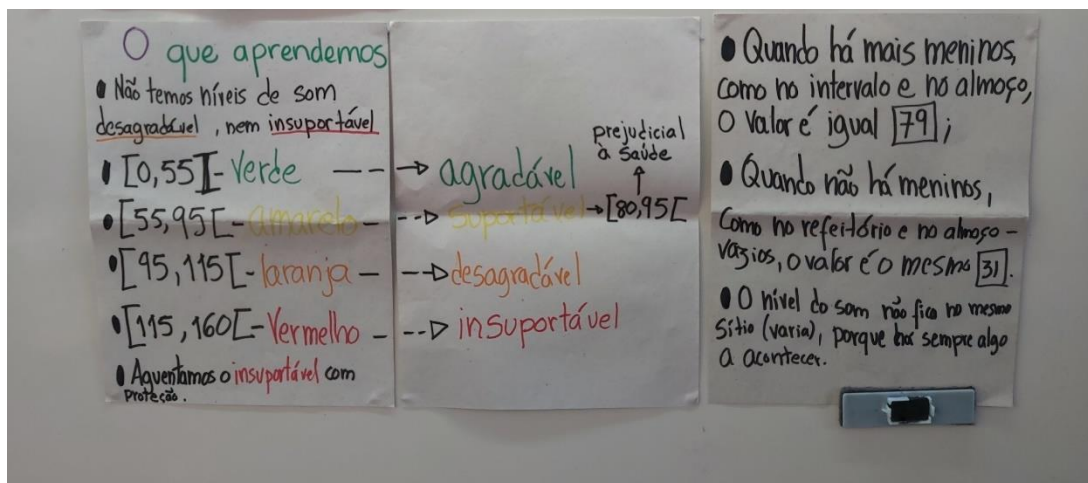 O que aprendemos
• Não temos níveis de som
desagradável, nem insuportável
• [0,55[ - Verde ---> agradável
• [55,95[ - amarelo ---> suportável → [80,95[
prejudicial
à saúde
• [95,115[ - laranja ---> desagradável
• [115,160[ - Vermelho ---> insuportável
• Aguentamos o insuportável com
proteção.
• Quando há mais meninos,
como no intervalo e no almoço,
o valor é igual 79;
• Quando não há meninos,
Como no refeitório e no almoço -
vazios, o valor é o mesmo 31.
• O nível do som não fica no mesmo
sítio (varia), porque há sempre algo
a acontecer.